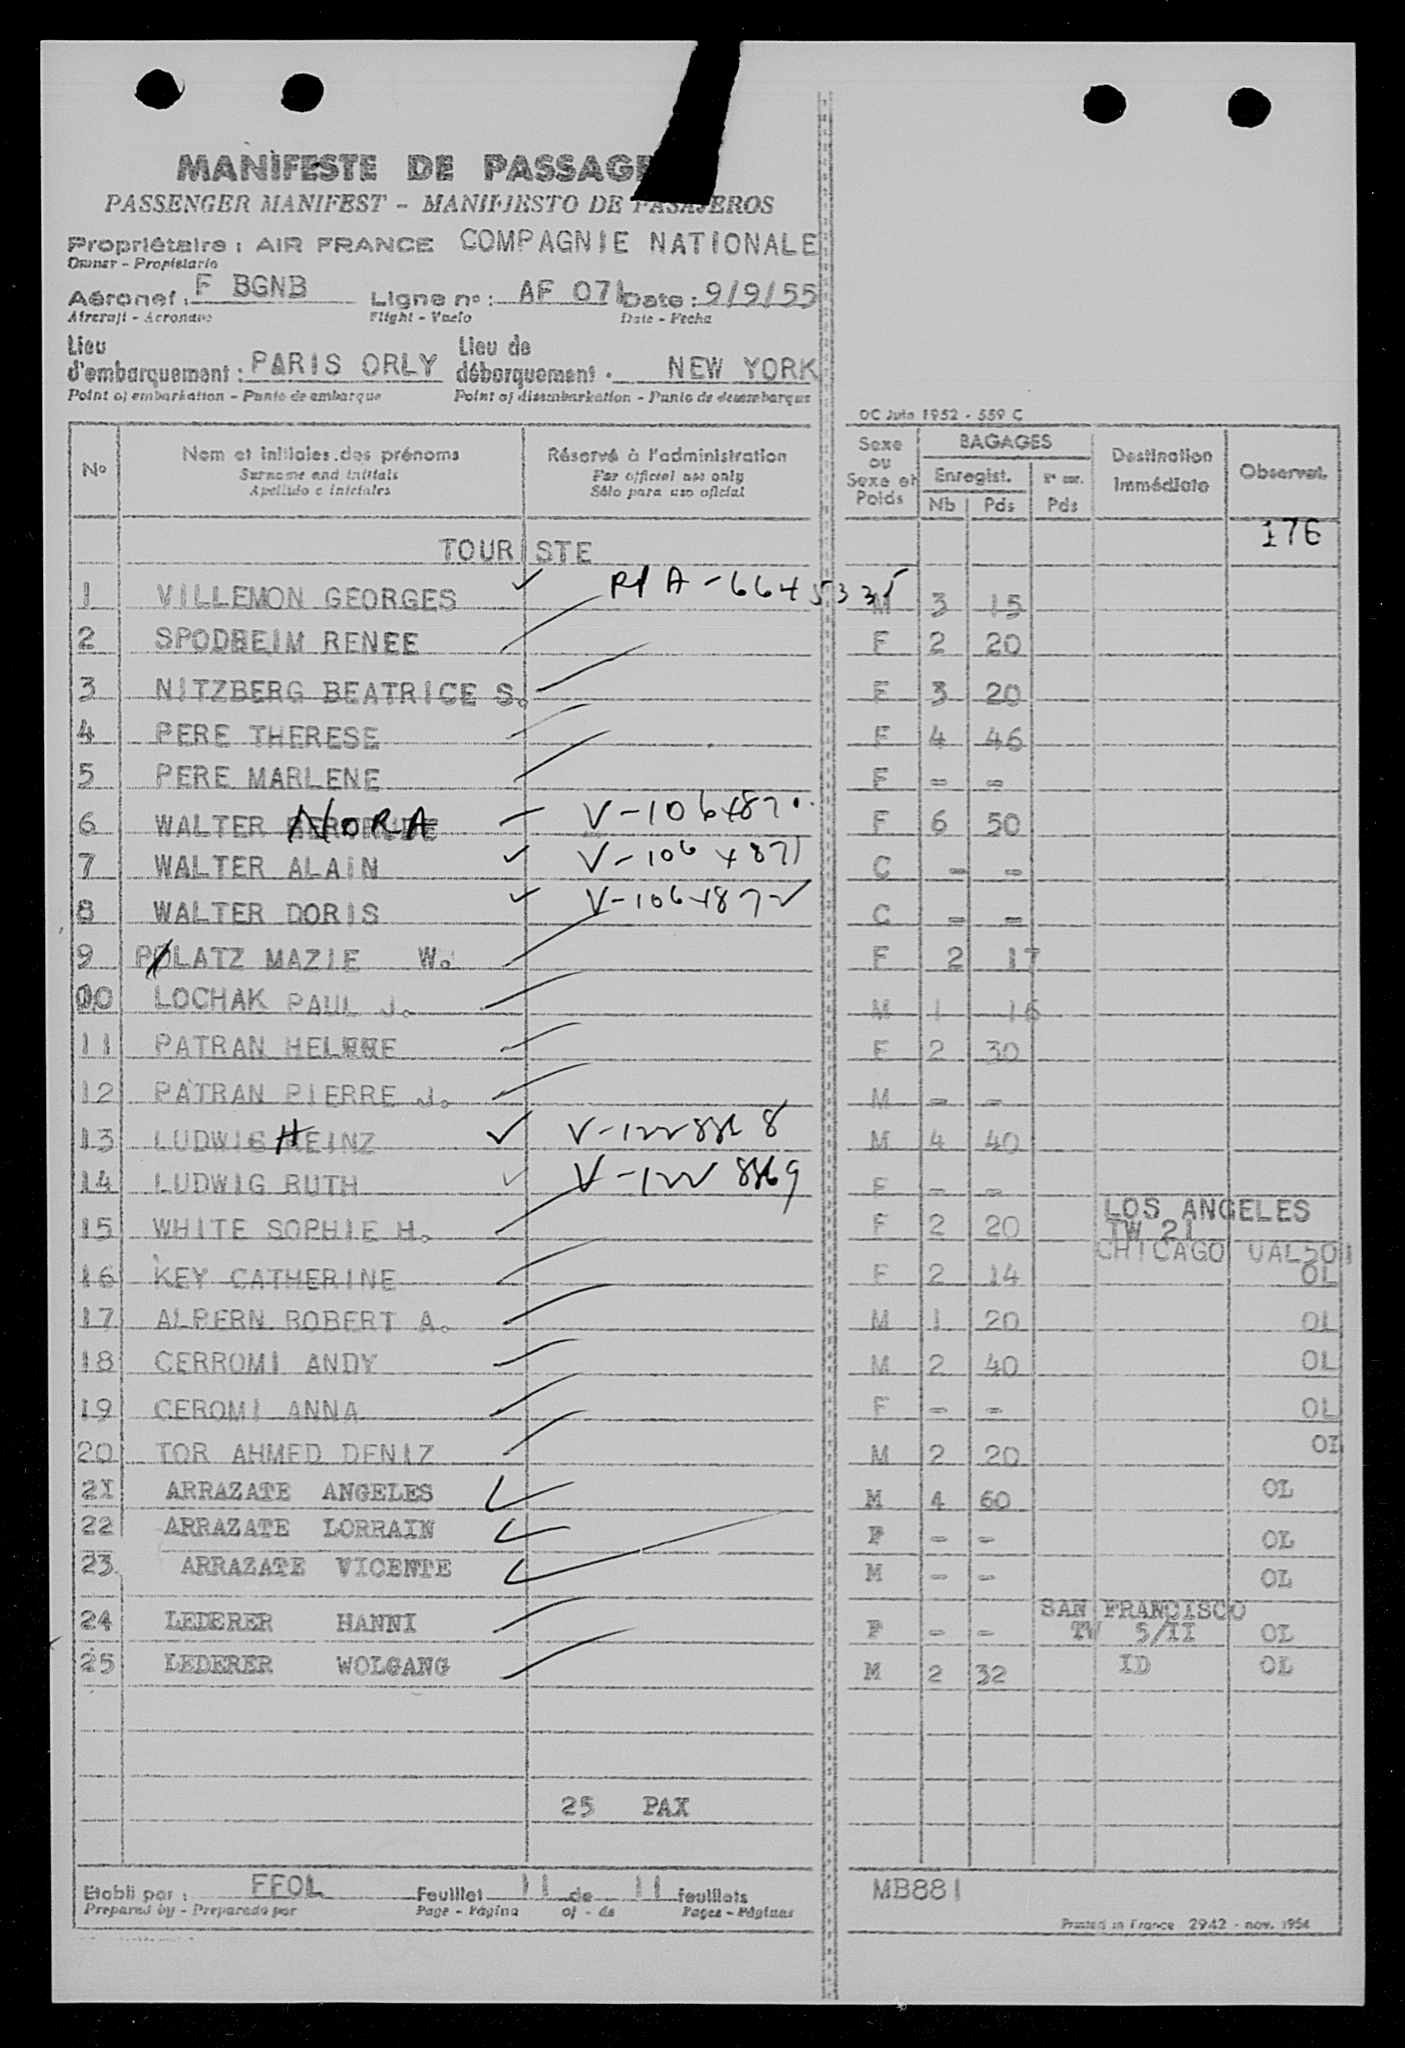 MANIFESTE DE PASSAGE
PASSENGER MANIFEST - MANIFIESTO DE PASAJEROS
Propriétaire : AIR FRANCE COMPAGNIE NATIONALE
Owner - Propietario
Aéronef : F BGNB Ligne no : AF 071 Date : 9/9/55
Aircraft - Aeronave Flight - Vuelo Date - Fecha
Lieu d'embarquement : PARIS ORLY Lieu de débarquement : NEW YORK
Point of embarkation - Punto de embarque Point of disembarkation - Punto de desembarque
DC Juin 1952 - 559 C
No Nom et initiales des prénoms Réservé à l'administration Sexe ou Sexe et Poids BAGAGES Destination Immédiate Observat.
Surname and initials For official use only Enregist. Pds
Apellido e iniciales Sólo para uso oficial Nb Pds
TOURISTE 176
1 VILLEMON GEORGES M 3 15
2 SPODBEIM RENEE F 2 20
3 NITZBERG BEATRICE S. F 3 20
4 PERE THERESE F 4 46
5 PERE MARLENE F - -
6 WALTER NORA V-1064870 F 6 50
7 WALTER ALAIN V-1064871 C - -
8 WALTER DORIS V-1064872 C - -
9 PLATZ MAZIE W. F 2 17
10 LOCHAK PAUL J. M 1 16
11 PATRAN HELENE F 2 30
12 PATRAN PIERRE J. M - -
13 LUDWIG HEINZ M 4 40
14 LUDWIG RUTH F - -
15 WHITE SOPHIE H. F 2 20 LOS ANGELES TW 21
16 KEY CATHERINE F 2 14 CHICAGO UAL501 OL
17 ALPERN ROBERT A. M 1 20 OL
18 CERROMI ANDY M 2 40 OL
19 CEROMI ANNA F - - OL
20 TOR AHMED DENIZ M 2 20 OL
21 ARRAZATE ANGELES M 4 60 OL
22 ARRAZATE LORRAIN F - - OL
23 ARRAZATE VICENTE M - - OL
24 LEDERER HANNI F - - SAN FRANCISCO TW 5/II OL
25 LEDERER WOLGANG M 2 32 ID OL
25 PAX
Etabli par : FFOL Feuillet 11 de 11 feuillets MB881
Prepared by - Preparado por Page - Página of - de Pages - Páginas
Printed in France 2942 - nov. 1954